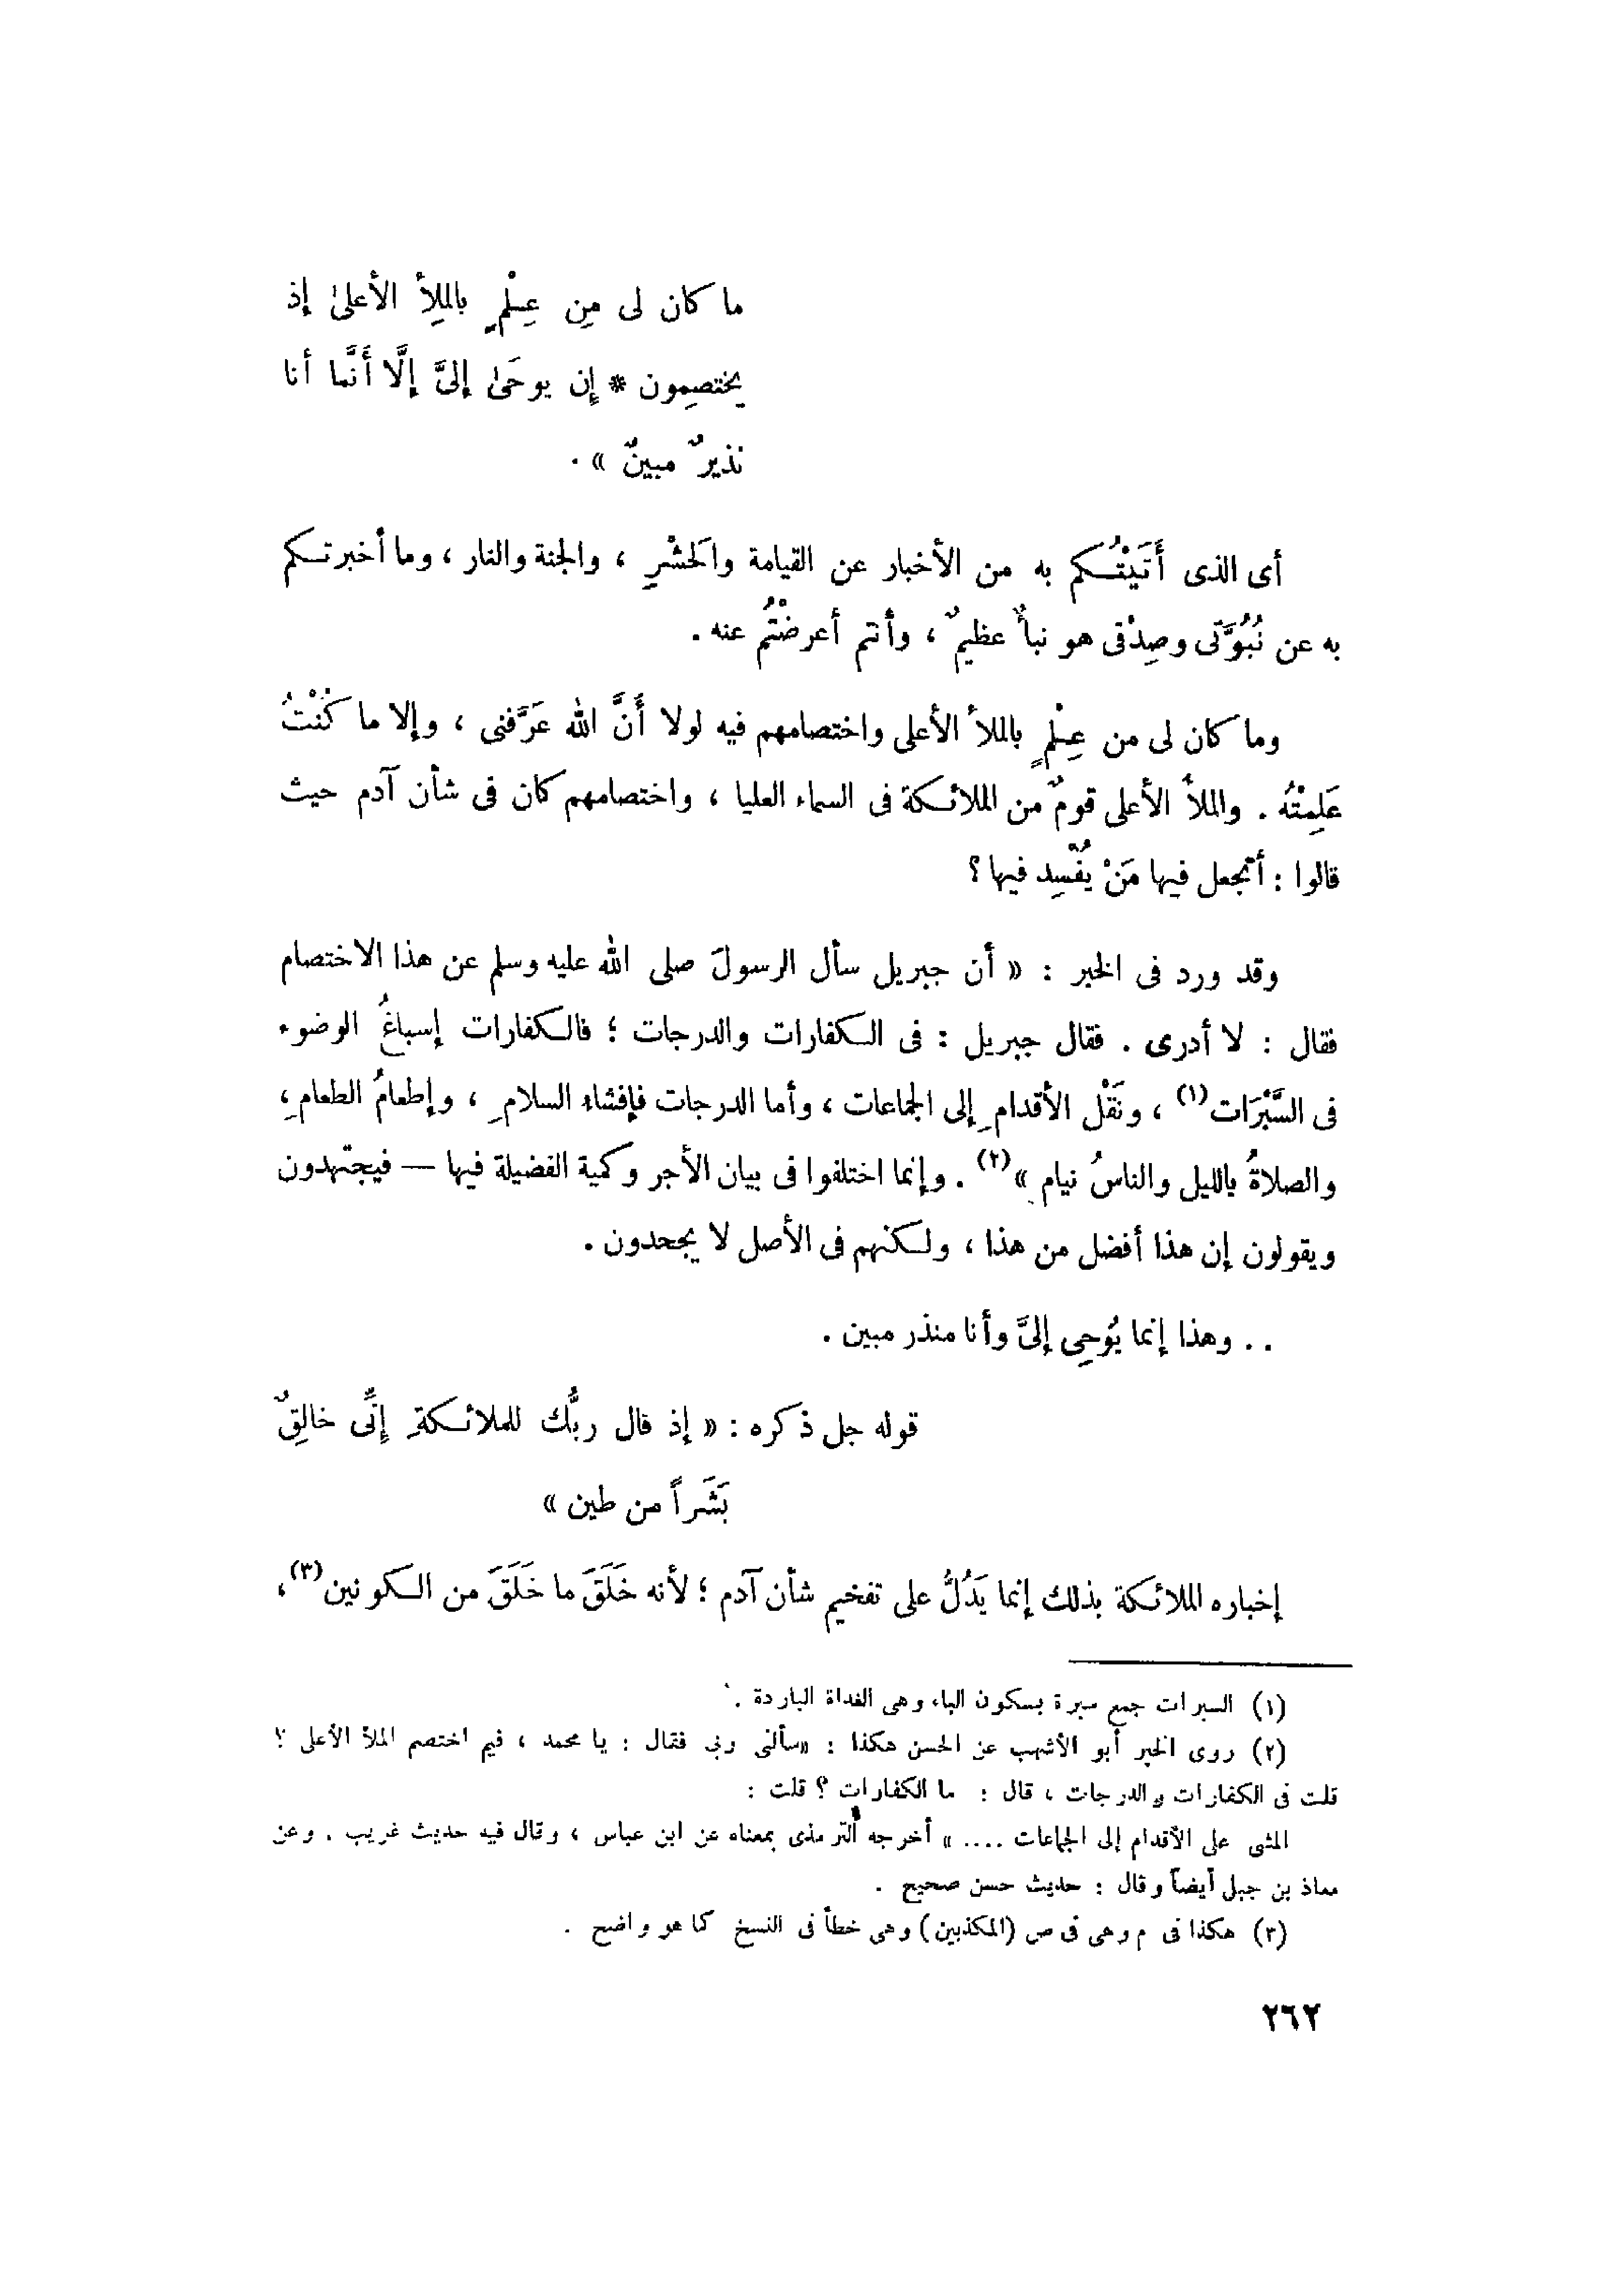 ما كان لى مِن عِلْمٍ بالملِأ الأعلىٰ إذ
يختصِمون * إن يوحَىٰ إلىَّ إلَّا أَنَّما أنا
نذيرٌ مبينٌ » .
أى الذى أَتَيْتُكم به من الأخبار عن القيامة والحَشْرِ ، والجنة والنار ، وما أخبرتكم
به عن نُبُوَّتى وصِدْقى هو نبأٌ عظيمٌ ، وأنتم أعرضْتُم عنه .
وما كان لى من عِلْمٍ بالملأ الأعلى واختصامهم فيه لولا أَنَّ الله عَرَّفنى ، وإلا ما كُنْتُ
عَلِمْتُه . والملأُ الأعلى قومٌ من الملائكة فى السماء العليا ، واختصامهم كان فى شأن آدم حيث
قالوا : أتجعل فيها مَنْ يُفْسِد فيها ؟
وقد ورد فى الخبر : « أن جبريل سأل الرسولَ صلى الله عليه وسلم عن هذا الاختصام
فقال : لا أدرى . فقال جبريل : فى الكفارات والدرجات ؛ فالكفارات إسباغُ الوضوء
فى السَّبْرَات(١) ، ونَقْل الأقدامِ إلى الجماعات ، وأما الدرجات فإفشاء السلامِ ، وإطعامُ الطعامِ ،
والصلاةُ بالليل والناسُ نيام »(٢) . وإنما اختلفوا فى بيان الأجر وكمية الفضيلة فيها — فيجتهدون
ويقولون إن هذا أفضل من هذا ، ولكنهم فى الأصل لا يجحدون .
. . وهذا إنما يُوحِى إلىَّ وأنا منذر مبين .
قوله جل ذكره : « إذ قال ربُّك للملائكةِ إنِّى خالِقٌ
بَشَراً من طين »
إخباره الملائكة بذلك إنما يَدُلُّ على تفخيم شأن آدم ؛ لأنه خَلَقَ ما خَلَقَ من الكونين(٣) ،
(١) السبرات جمع سبرة بسكون الباء وهى الغداة الباردة .
(٢) روى الخبر أبو الأشهب عن الحسن هكذا : «سألنى ربى فقال : يا محمد ، فيم اختصم الملأ الأعلى ؟
قلت فى الكفارات والدرجات ، قال : ما الكفارات ؟ قلت :
المشى على الأقدام إلى الجماعات .... » أخرجه الترمذى بمعناه عن ابن عباس ، وقال فيه حديث غريب . وعن
معاذ بن جبل أيضاً وقال : حديث حسن صحيح .
(٣) هكذا فى م وهى فى ص (المكذبين) وهى خطأ فى النسخ كما هو واضح .
٢٦٢